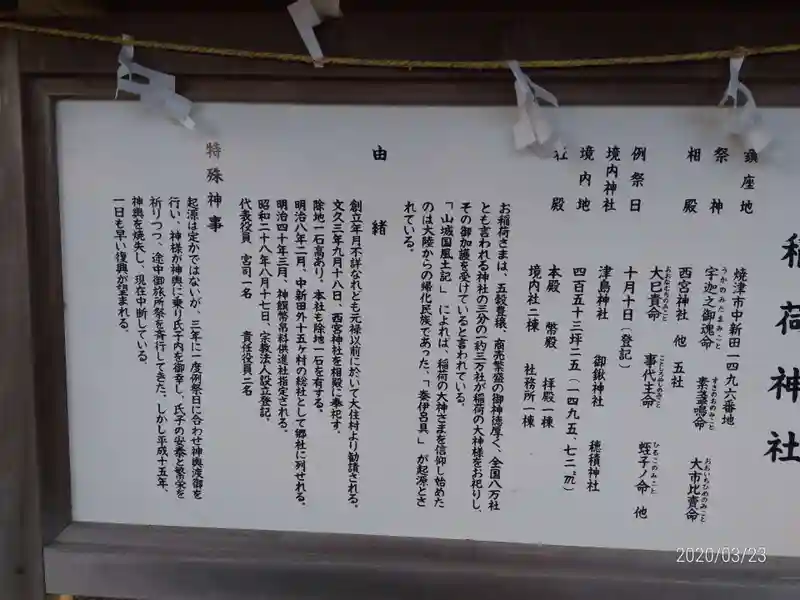 稲荷神社
鎮座地 焼津市中新田一四九六番地
祭神 宇迦之御魂命 素盞鳴命 大市比賣命
うかのみたまのみこと すさのおのみこと おおいちひめのみこと
相殿 西宮神社 他 五社
大巳貴命 事代主命 蛭子ノ命 他
おおなむちのみこと ことしろぬしのみこと ひるこのみこと
例祭日 十月十日(登記)
境内神社 津島神社 御鍬神社 穂積神社
境内地 四百五十三坪二五(一四九五、七二㎡)
社殿 本殿 幣殿 拝殿一棟
境内社二棟 社務所一棟
お稲荷さまは、五穀豊穣、商売繁盛の御神徳厚く、全国八万社
とも言われる神社の三分の一約三万社が稲荷の大神様をお祀りし、
その御加護を受けていると言われている。
「山城国風土記」によれば、稲荷の大神さまを信仰し始めた
のは大陸からの帰化民族であった、「秦伊呂具」が起源とさ
れている。
由緒
創立年月不詳なれども元禄以前に於いて大住村より勧請される。
文久三年九月十八日、西宮神社を相殿に奉祀す。
除地一石高あり。本社も除地一石を有する。
明治八年二月、中新田外十五ヶ村の総社として郷社に列せれる。
明治四十年三月、神饌幣帛料供進社指定される。
昭和二十八年八月十七日、宗教法人設立登記。
代表役員 宮司一名 責任役員二名
特殊神事
起源は定かではないが、三年に一度例祭日に合わせ神輿渡御を
行い、神様が神輿に乗り氏子内を御幸し、氏子の安泰と繁栄を
祈りつつ、途中御旅所祭を斉行してきた。しかし平成十五年、
神輿を焼失し、現在中断している。
一日も早い復興が望まれる。
2020/03/23